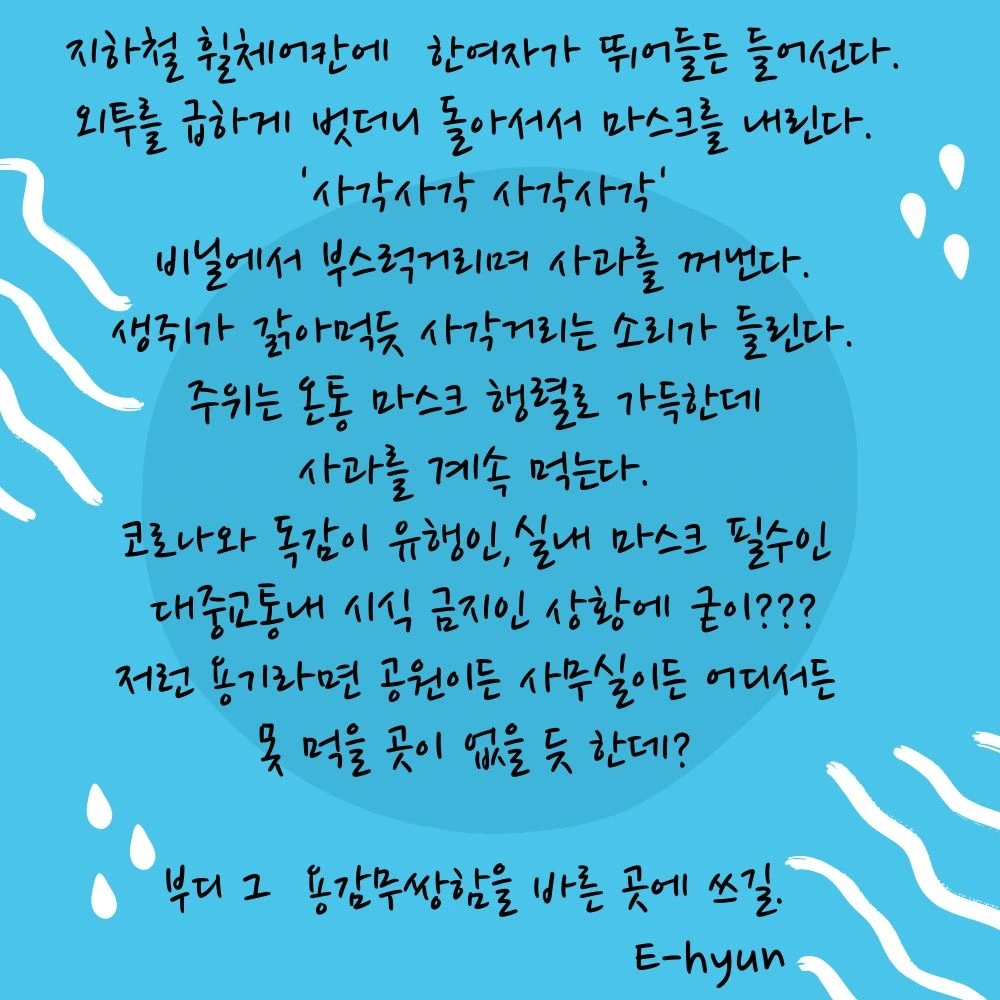 지하철 휠체어칸에 한여자가 뛰어들든 들어선다.
외투를 급하게 벗더니 돌아서서 마스크를 내린다.
'사각사각 사각사각'
비닐에서 부스럭거리며 사과를 꺼낸다.
생쥐가 갉아먹듯 사각거리는 소리가 들린다.
주위는 온통 마스크 행렬로 가득한데
사과를 계속 먹는다.
코로나와 독감이 유행인,실내 마스크 필수인
대중교통내 시식 금지인 상황에 굳이???
저런 용기라면 공원이든 사무실이든 어디서든
못 먹을 곳이 없을 듯 한데?
부디 그 용감무쌍함을 바른 곳에 쓰길.
E-hyun